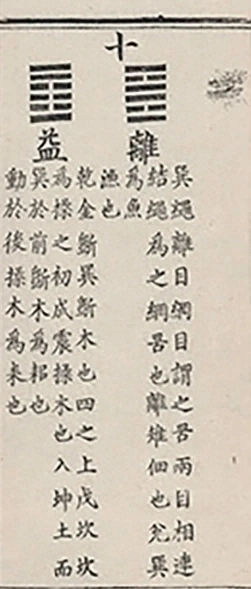 十
離
巽繩離目網目謂之罟兩目相連
結繩為之網罟也離雉佃也兊巽
為魚
漁也
益
乾金斷巽斷木也四之上戊坎坎
為揉之初成震揉木也入坤土而
巽於前斷木為耜也
動於後揉木為耒也